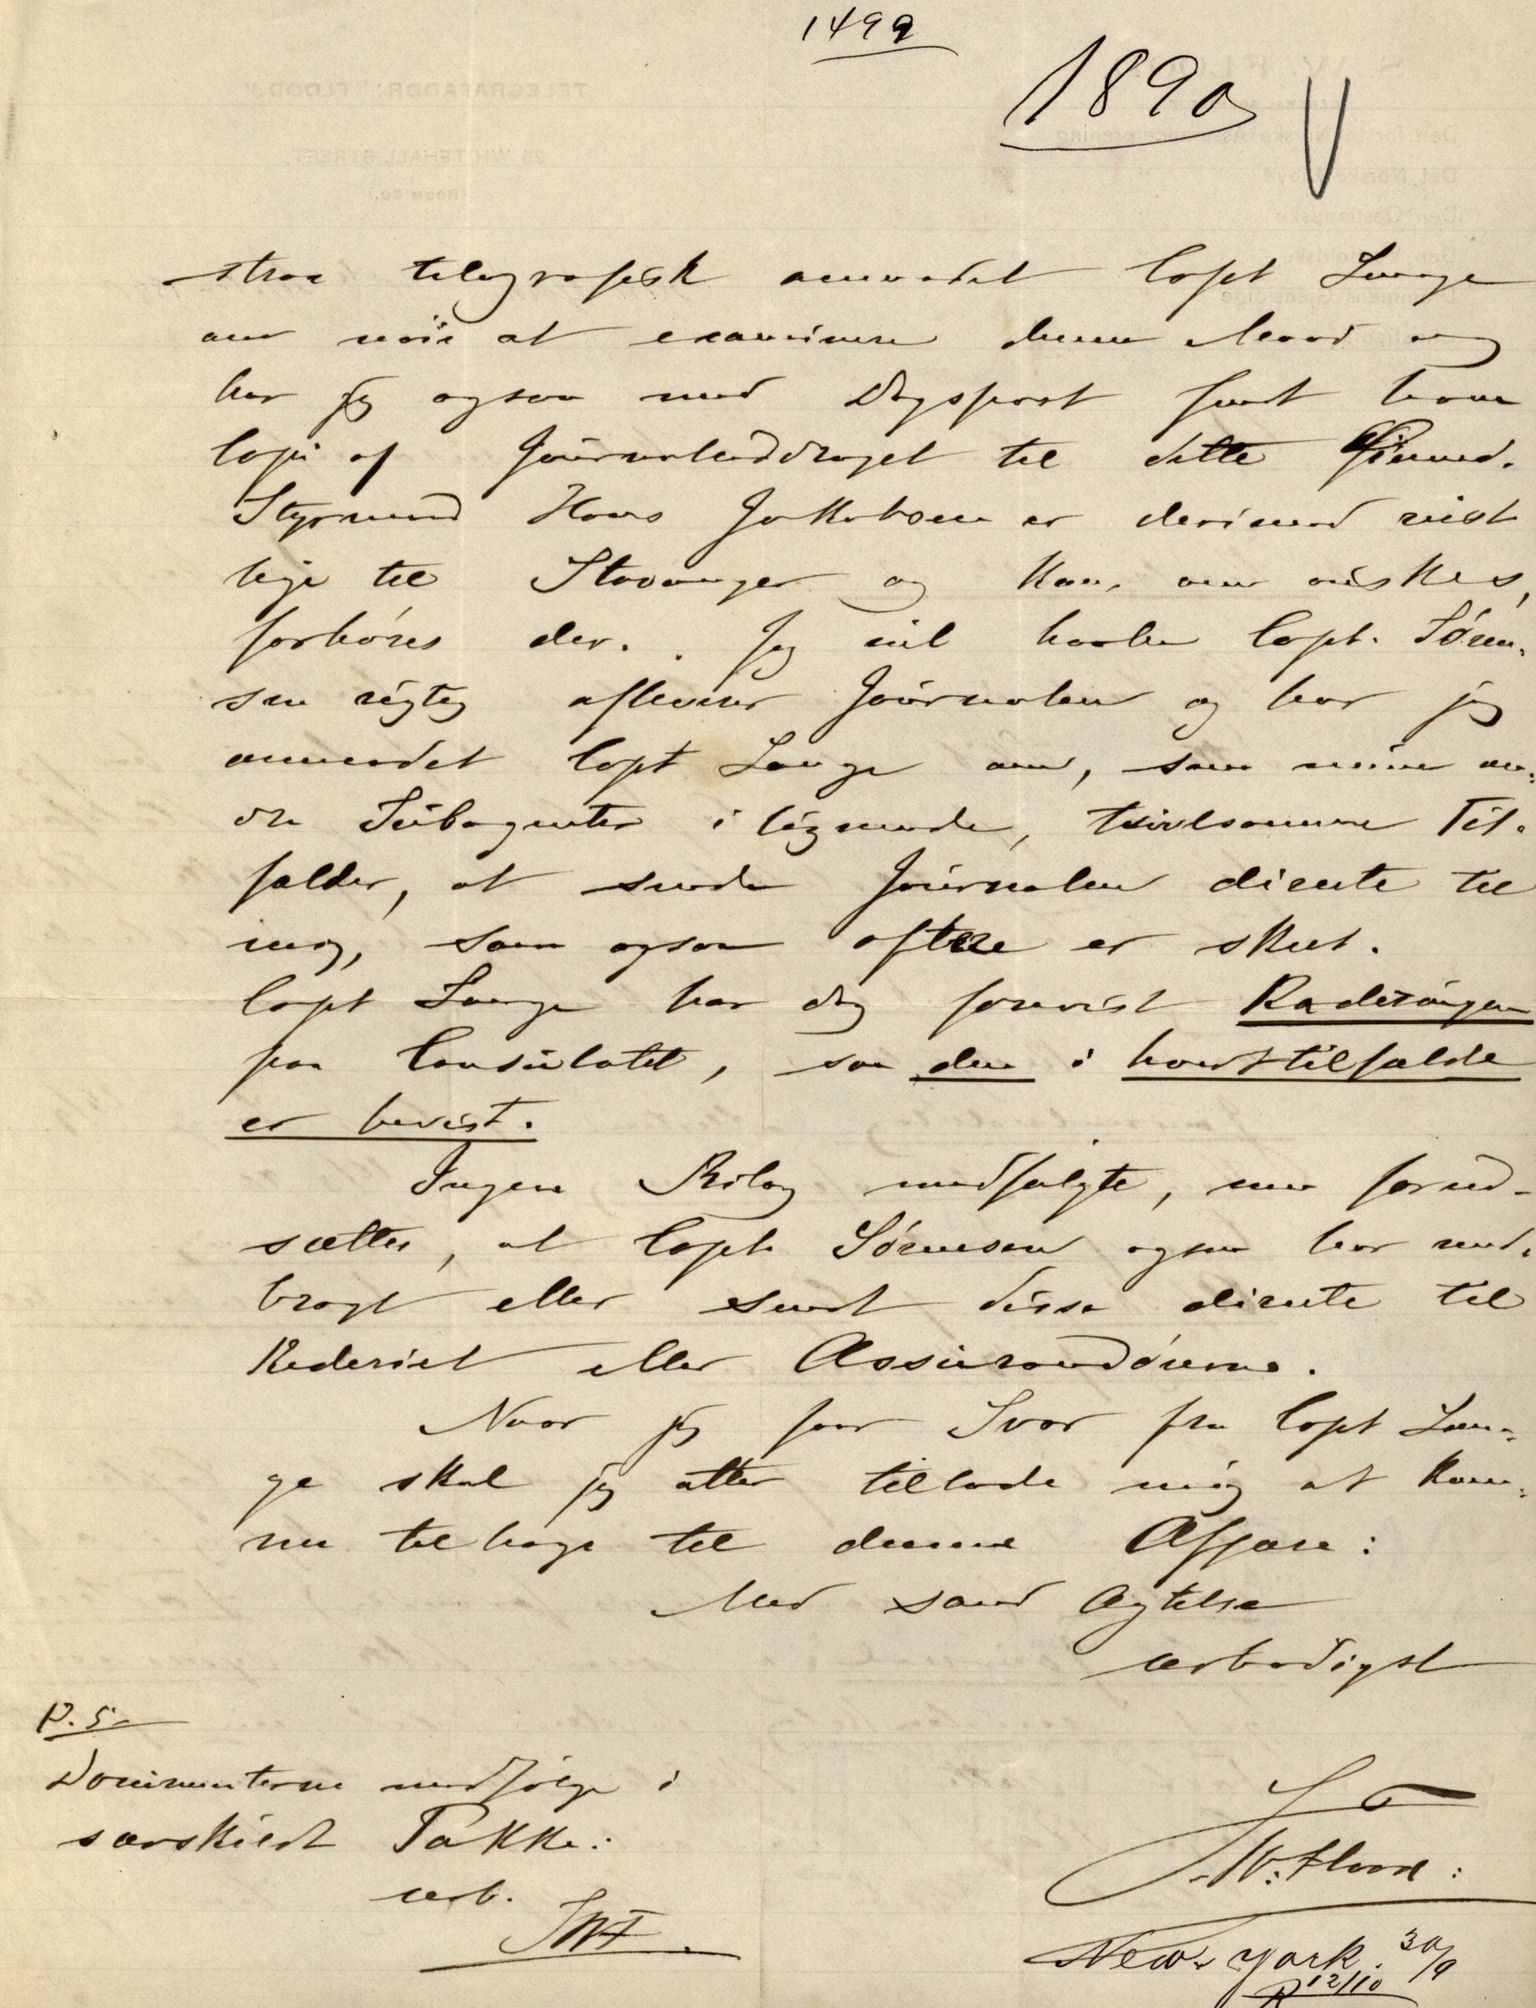 1499
1890
strax telegrafisk anmodet Capt Lange
om nöie at examinere denne Mand og
har jeg ogsaa med Dagspost sendt ham
Copi af Journaluddraget til dette Öiemed.
Styrmand Hans Jakobsen er derimod reist
hjem til Stavanger og kan, om önskes,
forhöres der. Jeg vil haabe Capt. Sören-
sen rigtig afleverer Journalen og har jeg
anmodet Capt Lange om, som mine an-
dre Subagenter i lignende, tvivlsomme Til-
fælder, at sende Journalen directe til
mig, som ogsaa oftere er skeet.
Capt Lange har dog forevist Raderingen
paa Consulatet, saa den i hvert tilfælde
er bevist.
Ingen Bilag medfulgte, men forud-
sætter, at Capt. Sörensen ogsaa har med-
bragt eller sendt disse directe til
Rederiet eller Assurandörerne.
Naar jeg faar Svar fra Capt Lan-
ge skal jeg atter tillade mig at kom-
me tilbage til denne Affære:
Med sand Agtelse
ærbödigst
P.S.
Documenterne medfölge i
særskildt Pakke:
ærb.
SWF
S. W. Flood:
New York 30/9
R 12/10